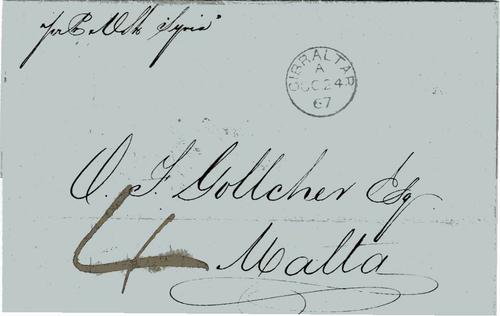 per P. & O. Str. Syria
GIBRALTAR
A
OC 24
67
O. F. Gollcher Esq
4
Malta